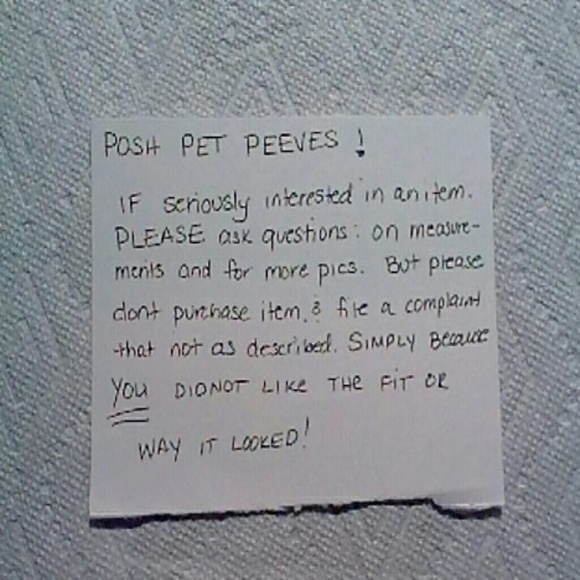 POSH PET PEEVES !
IF seriously interested in an item.
PLEASE ask questions: on measure-
ments and for more pics. But please
dont purchase item, & file a complaint
that not as described. SIMPLY Because
YOU DIDNOT LIKE THE FIT OR
WAY IT LOOKED!